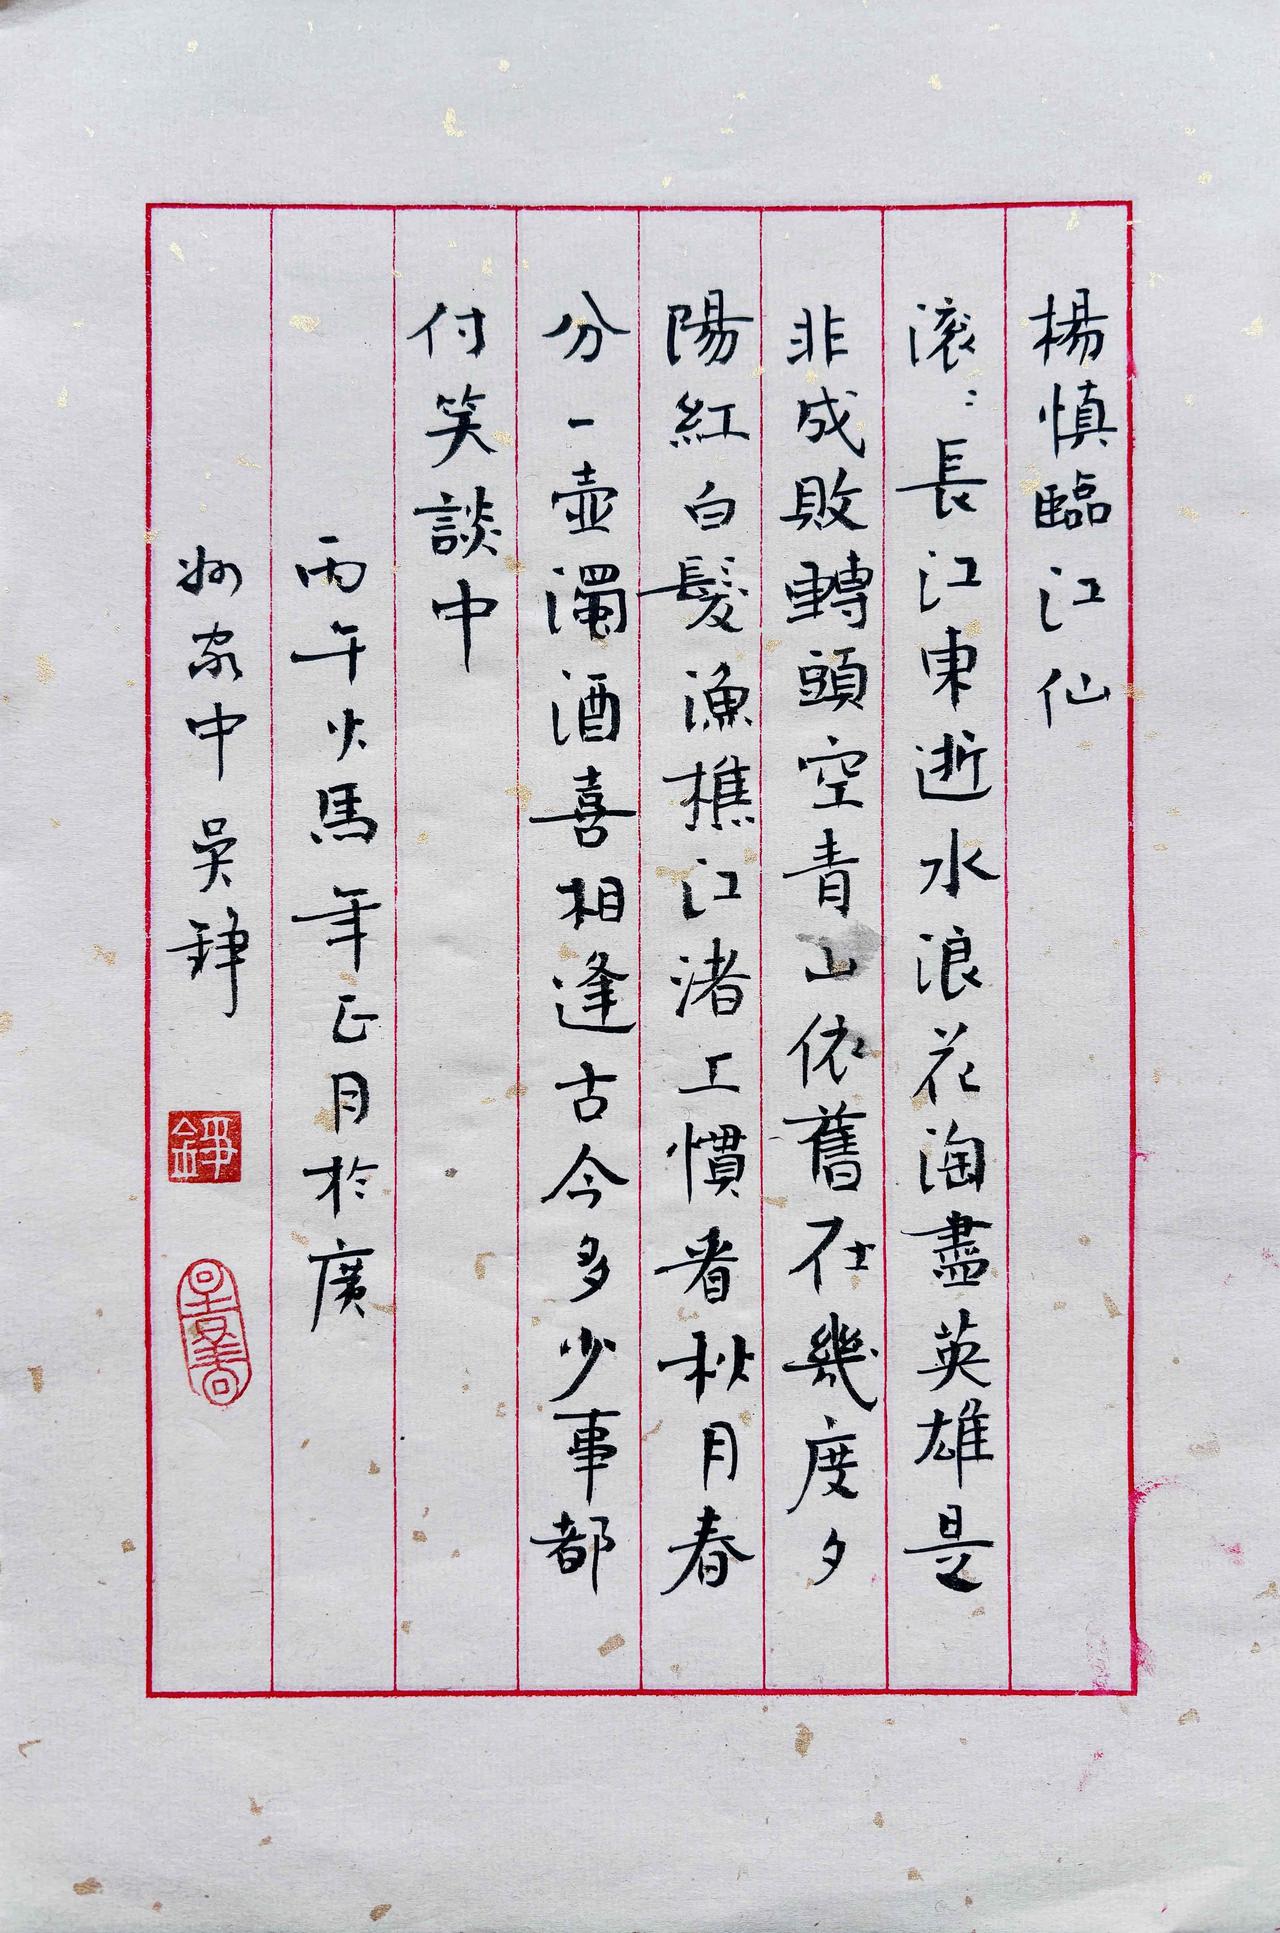 楊慎臨江仙
滚：長江東逝水浪花淘盡英雄是
非成敗轉頭空青山依舊在幾度夕
陽紅白髮漁樵江渚上慣看秋月春
分一壺濁酒喜相逢古今多少事都
付笑談中
丙午火馬年正月於廣
州家中吴錚
錚